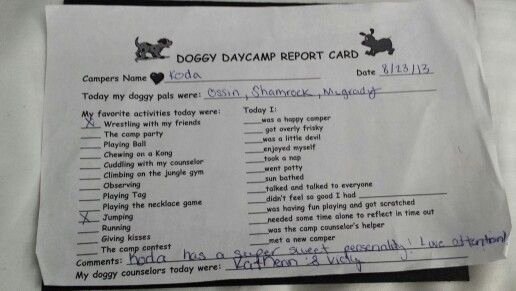 DOGGY DAYCAMP REPORT CARD
Campers Name Koda Date 8/13/13
Today my doggy pals were: Ossin, Shamrock, Mugrady
My favorite activities today were:
X Wrestling with my friends
The camp party
Playing Ball
Chewing on a Kong
Cuddling with my counselor
Climbing on the jungle gym
Observing
Playing Tag
Playing the necklace game
X Jumping
Running
Giving kisses
The camp contest
Today I:
was a happy camper
got overly frisky
was a little devil
enjoyed myself
took a nap
went potty
sun bathed
talked and talked to everyone
didn't feel so good I had
was having fun playing and got scratched
needed some time alone to reflect in time out
was the camp counselor's helper
met a new camper
Comments: Koda has a super sweet personality! Love attention!
My doggy counselors today were: & Vicky